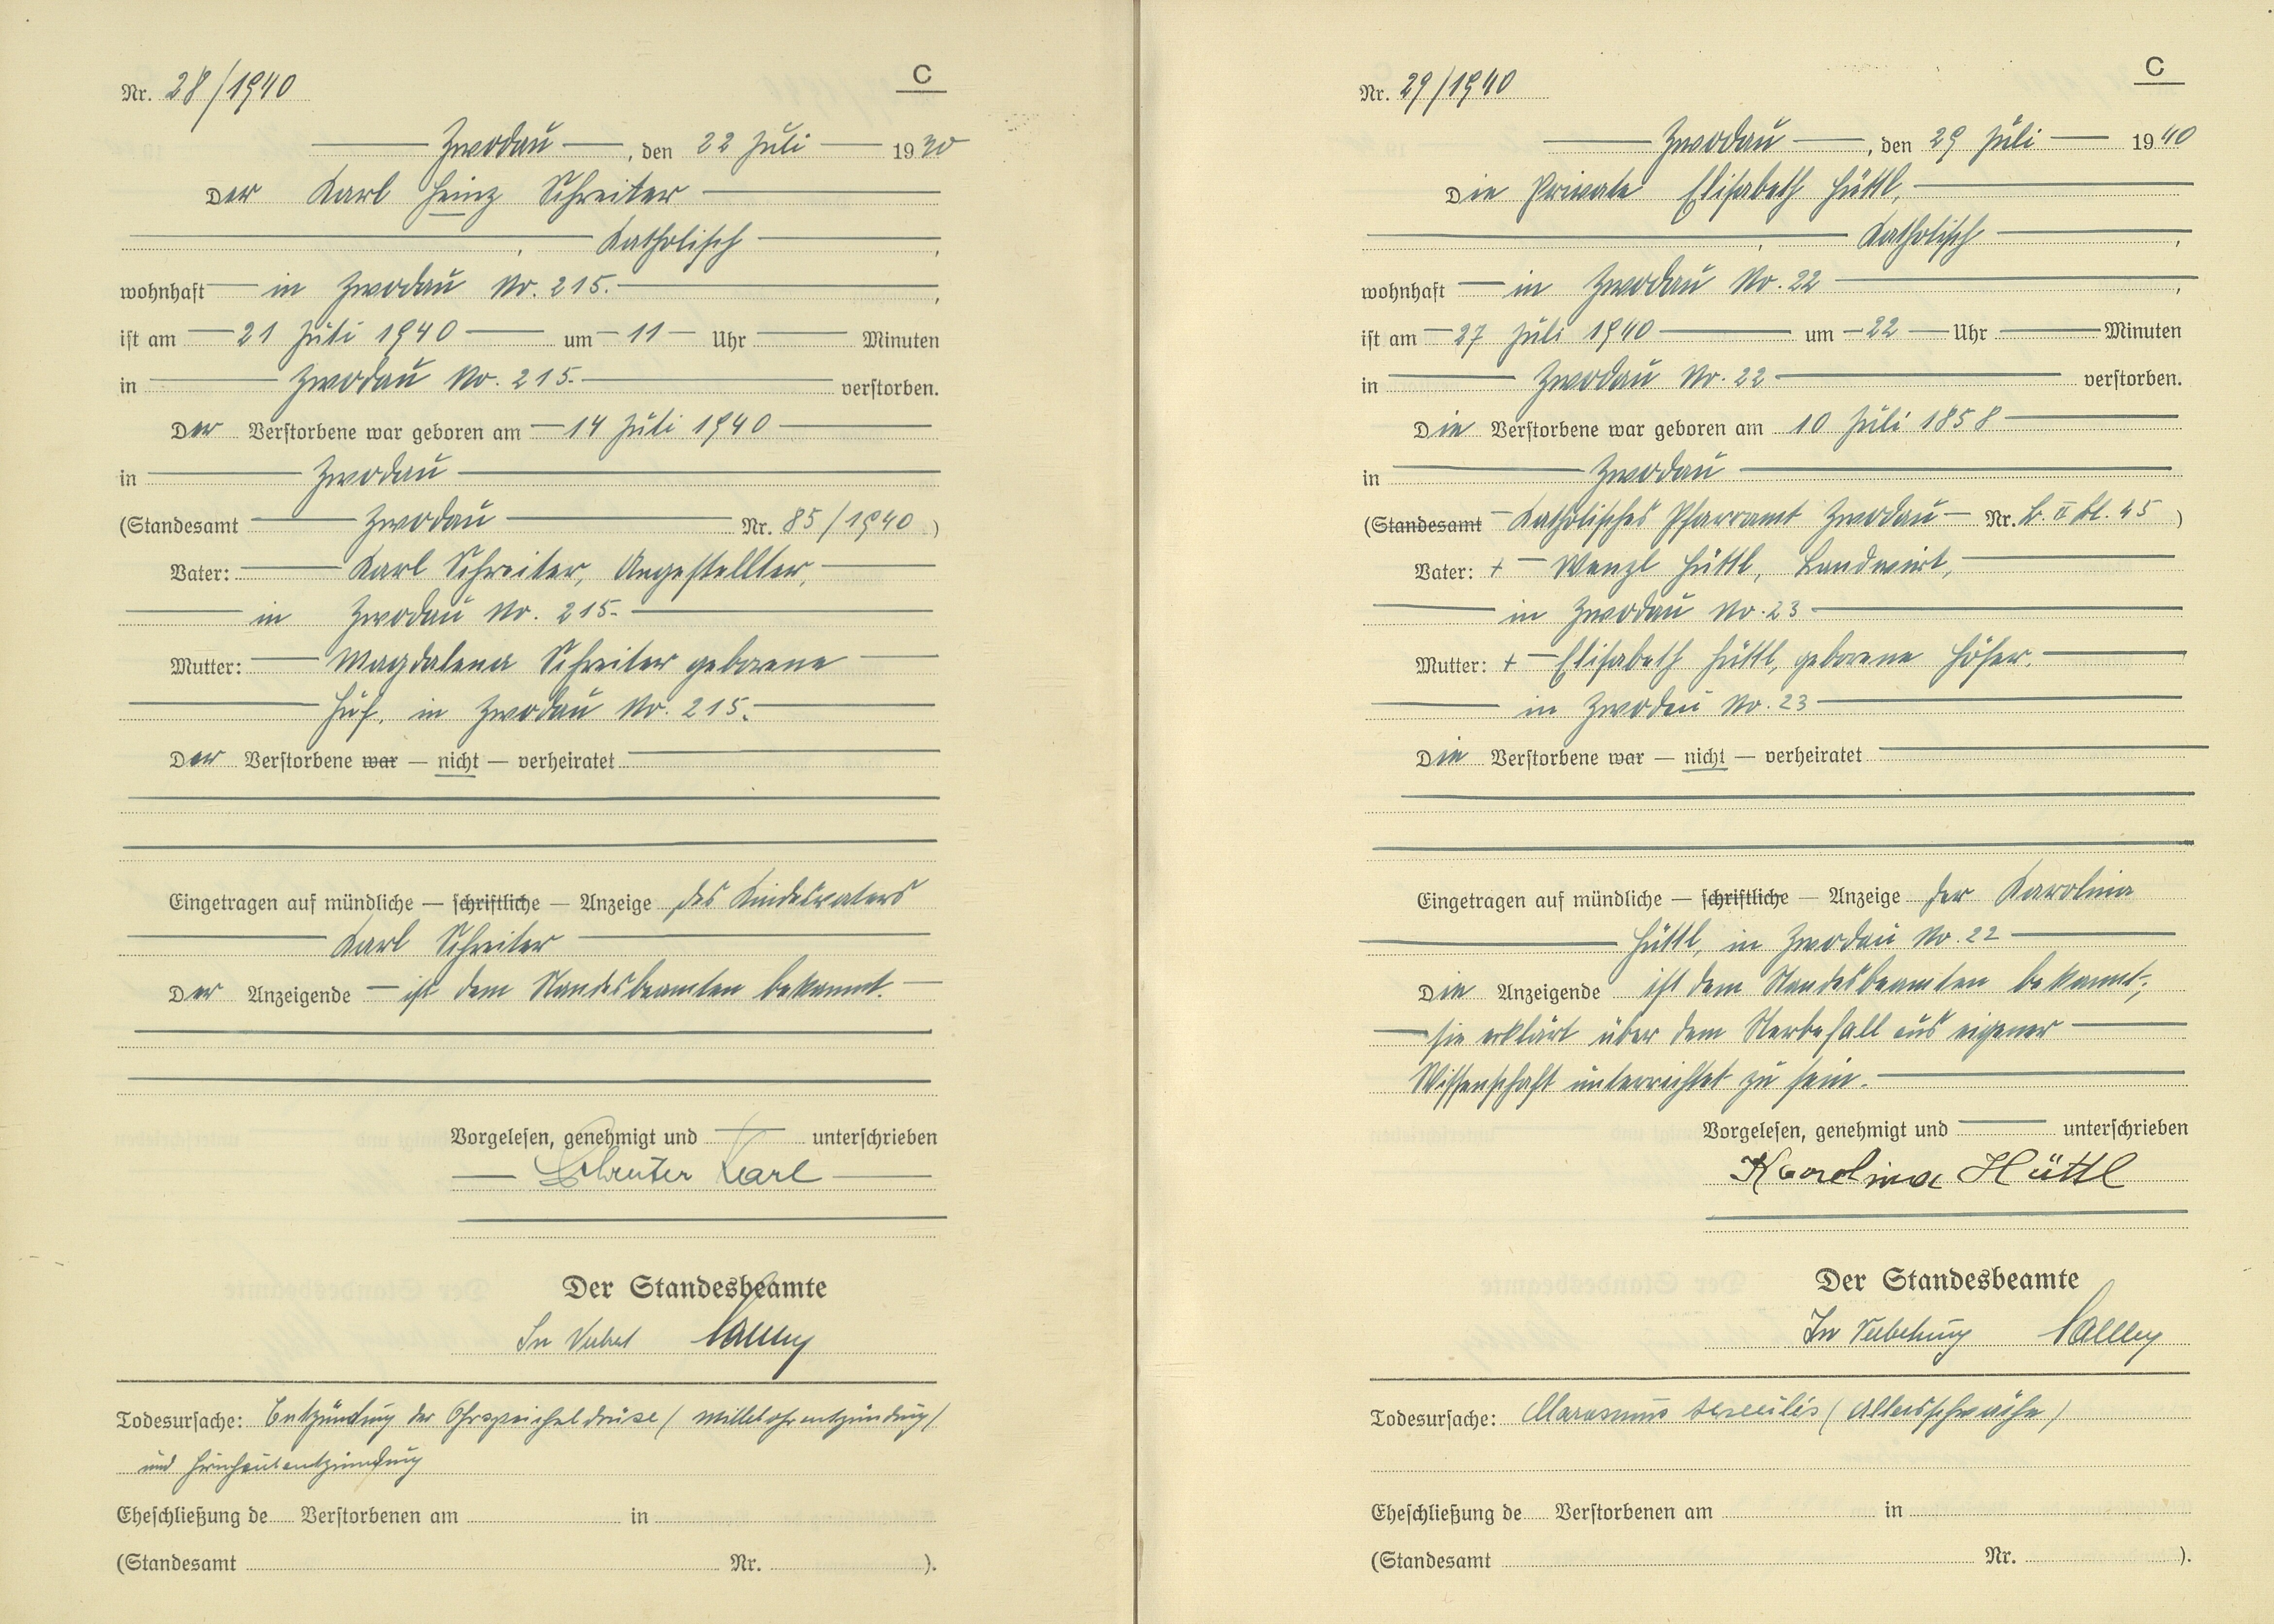 C
Nr. 28/1940
Zwodau, den 22 Juli 1930
Der Karl Heinz Schreiter
, Katholisch,
wohnhaft in Zwodau No. 215.,
ist am 21 Juli 1940 um 11 Uhr Minuten
in Zwodau No. 215. verstorben.
Der Verstorbene war geboren am 14 Juli 1940
in Zwodau
(Standesamt Zwodau Nr. 85/1940)
Vater: Karl Schreiter, Angestellter,
in Zwodau No. 215.
Mutter: Magdalena Schreiter geborene
in Zwodau No. 215.
Der Verstorbene war — nicht — verheiratet
Eingetragen auf mündliche — schriftliche — Anzeige des Kindesvaters
Karl Schreiter
Der Anzeigende ist dem Standesbeamten bekannt.
Vorgelesen, genehmigt und unterschrieben
Schreiter Karl
Der Standesbeamte
In Vertret
Todesursache: Entzündung der Ohrspeicheldrüse / Mittelohrentzündung /
und Hirnhautentzündung
Eheschließung de Verstorbenen am in
(Standesamt Nr. ).
C
Nr. 29/1940
Zwodau, den 29 Juli 1940
Die Private Elisabeth Hüttl,
, Katholisch,
wohnhaft in Zwodau No. 22,
ist am 27 Juli 1940 um 22 Uhr Minuten
in Zwodau No. 22 verstorben.
Die Verstorbene war geboren am 10 Juli 1858
in Zwodau
(Standesamt Katholisches Pfarramt Zwodau Nr. b. II bl. 45)
Vater: + Wenzl Hüttl, Landwirt,
in Zwodau No. 23
Mutter: + Elisabeth Hüttl, geborene Höfer.
in Zwodau No. 23
Die Verstorbene war — nicht — verheiratet
Eingetragen auf mündliche — schriftliche — Anzeige der Karolina
Hüttl, in Zwodau No. 22
Die Anzeigende ist dem Standesbeamten bekannt;
sie erklärt über dem Sterbefall aus eigener
Wissenschaft unterrichtet zu sein.
Vorgelesen, genehmigt und unterschrieben
Karolina Hüttl
Der Standesbeamte
In Vertretung
Todesursache: Marasmus senilis (Altersschwäche)
Eheschließung de Verstorbenen am in
(Standesamt Nr. ).